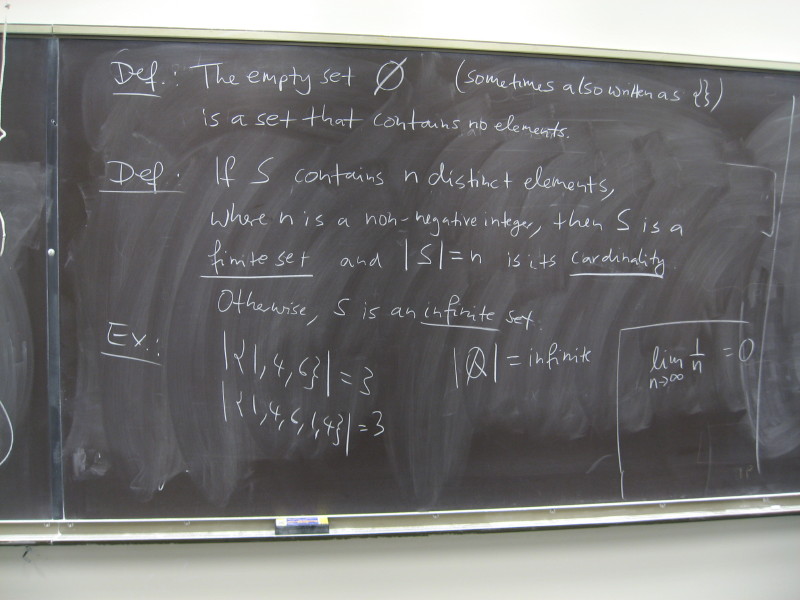 Def.: The empty set ∅ (sometimes also written as {})
is a set that contains no elements.
Def. If S contains n distinct elements,
where n is a non-negative integer, then S is a
finite set and |S| = n is its cardinality.
Otherwise, S is an infinite set.
Ex.:
|{1, 4, 6}| = 3
|{1, 4, 6, 1, 4}| = 3
|ℚ| = infinite
lim n→∞ 1/n = 0